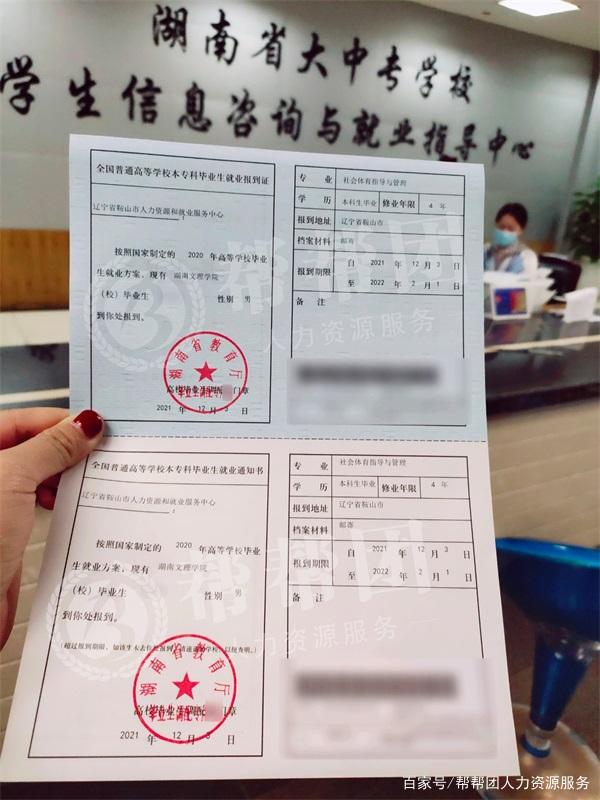 湖南省大中专学校
学生信息咨询与就业指导中心
全国普通高等学校本专科毕业生就业报到证
辽宁省鞍山市人力资源和就业服务中心
按照国家制定的 2020 年高等学校毕业
生就业方案，现有 湖南文理学院
（校）毕业生 性别 男
到你处报到。
湖南省教育厅
高校毕业生调配 门章
2021 年 12 月 3 日
专业 社会体育指导与管理
学历 本科生毕业 修业年限 4 年
报到地址 辽宁省鞍山市
档案材料 邮寄
报到期限 自 2021 年 12 月 3 日
至 2022 年 2 月 1 日
备注
帮帮团
人力资源服务
全国普通高等学校本专科毕业生就业通知书
辽宁省鞍山市人力资源和就业服务中心
按照国家制定的 2020 年高等学校毕业
生就业方案，现有 湖南文理学院
（校）毕业生 性别 男
到你处报到。
湖南省教育厅
高校毕业生调配 门章
2021 年 12 月 3 日
专业 社会体育指导与管理
学历 本科生毕业 修业年限 4 年
报到地址 辽宁省鞍山市
档案材料 邮寄
报到期限 自 2021 年 12 月 3 日
至 2022 年 2 月 1 日
备注
帮帮团
人力资源服务
百家号/帮帮团人力资源服务